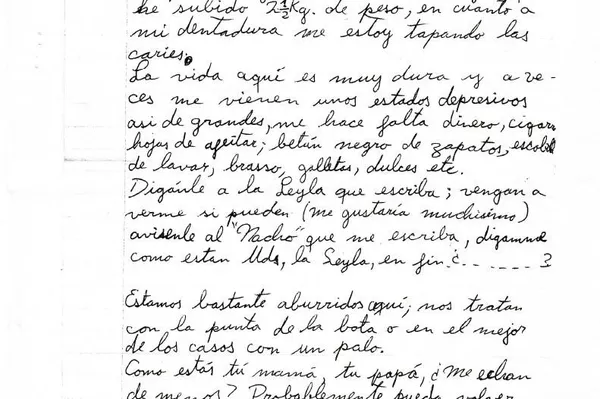 he subido 2½Kg. de peso, en cuanto a
mi dentadura me estoy tapando las
caries.
La vida aquí es muy dura y a ve-
ces me vienen unos estados depresivos
asi de grandes, me hace falta dinero, cigarr
hojas de afeitar; betún negro de zapatos, escobill
de lavar, brasso, galletas, dulces etc.
Diganle a la Leyla que escriba; vengan a
verme si pueden (me gustaría muchisimo)
avisenle al "Nacho" que me escriba, diganme
como estan Uds, la Leyla, en fin ¿.......?
Estamos bastante aburridos aquí; nos tratan
con la punta de la bota o en el mejor
de los casos con un palo.
Como estás tú mamá, tu papá, ¿Me echan
de menos? Probablemente pueda volver